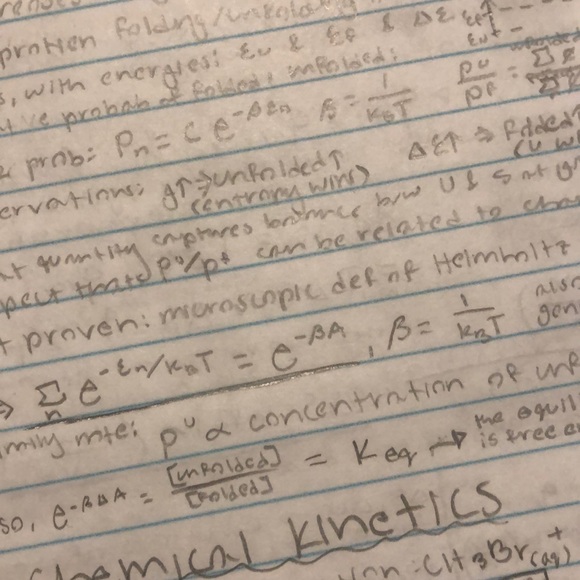 protien folding/
s, with energies: εu & εf & Δε
probab of folded: unfolded:
prob: Pn = c e^-βεn β = 1/kBT pu/pf =
ervations: g↑ → unfolded↑ Δε↑ → Folded↑
(entropy wins)
quantity captures balance b/w U & S at
pect that pu/pf can be related to
t proven: microscopic def of Helmholtz
→ Σn e^-εn/kBT = e^-βA, β = 1/kBT also
note: pu ∝ concentration of unf
so, e^-βΔA = [unfolded]/[folded] = Keq → the equil
is free
Chemical Kinetics
CH3Br(aq) +